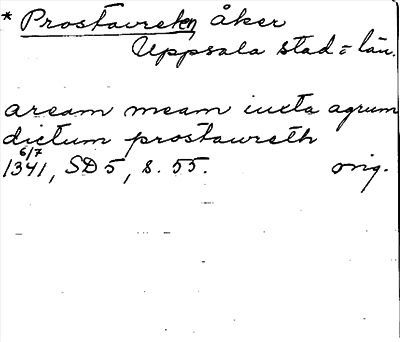 * Prostavreten, åker
Uppsala stad o län.
aream meam iuxta agrum
dictum prostawreth
6/7
1341, SD 5, s. 55. orig.